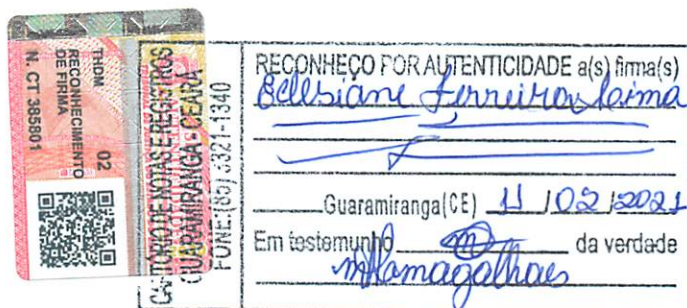 THDM 02
RECONHECIMENTO
DE FIRMA
N. CT 385801
CARTÓRIO DE NOTAS E REGISTROS
GUARAMIRANGA - CEARÁ
FONE: (85) 3321-1340
RECONHEÇO POR AUTENTICIDADE a(s) firma(s)
Eclesiane Ferreira Lima
Guaramiranga(CE) 11 / 02 / 2021
Em testemunho da verdade